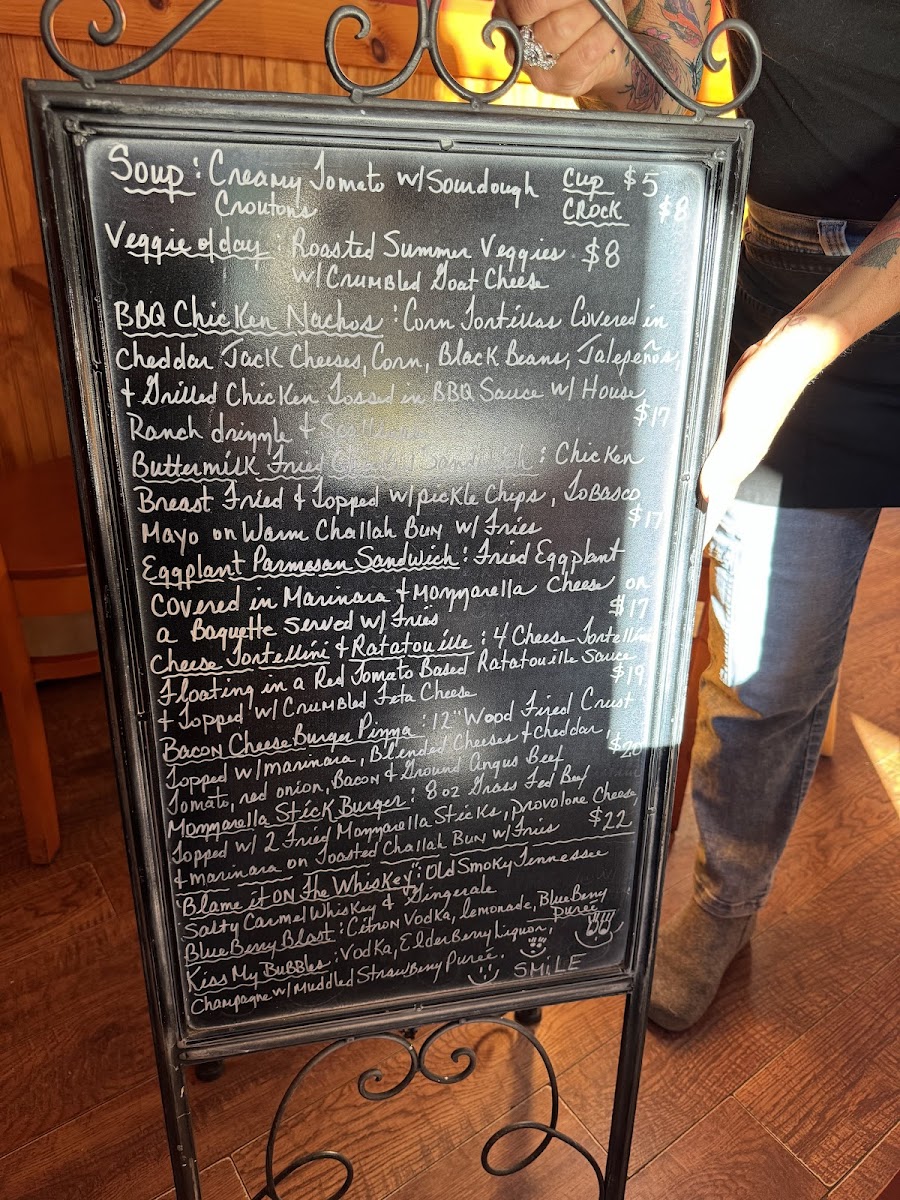 Soup: Creamy Tomato w/ Sourdough Cup $5
Croutons CROCK $8
Veggie of day: Roasted Summer Veggies $8
w/ Crumbled Goat Cheese
BBQ Chicken Nachos: Corn Tortillas Covered in
Cheddar Jack Cheeses, Corn, Black Beans, Jalepeños,
& Grilled Chicken Tossed in BBQ Sauce w/ House
Ranch drizzle & Scallions $17
Buttermilk Fried Chicken Sandwich: Chicken
Breast Fried & Topped w/ pickle Chips, Tobasco
Mayo on Warm Challah Bun w/ Fries $17
Eggplant Parmesan Sandwich: Fried Eggplant
Covered in Marinara & Mozzarella Cheese on
a Baguette Served w/ Fries $17
Cheese Tortellini & Ratatouille: 4 Cheese Tortellini
Floating in a Red Tomato Based Ratatouille Sauce
& Topped w/ Crumbled Feta Cheese $19
Bacon Cheese Burger Pizza: 12" Wood Fired Crust
Topped w/ marinara, Blended Cheeses & cheddar,
Tomato, red onion, Bacon & Ground Angus Beef $20
Mozzarella Stick Burger: 8 oz Grass Fed Beef
Topped w/ 2 Fried Mozzarella Sticks, provolone Cheese,
& marinara on Toasted Challah Bun w/ Fries $22
"Blame it on the Whiskey": Old Smoky Tennessee
Salty Carmel Whiskey & Gingerale
BlueBerry Blast: Citron Vodka, lemonade, BlueBerry
Puree
Kiss My Bubbles: Vodka, ElderBerry Liquor,
Champagne w/ Muddled StrawBerry Puree. SMILE